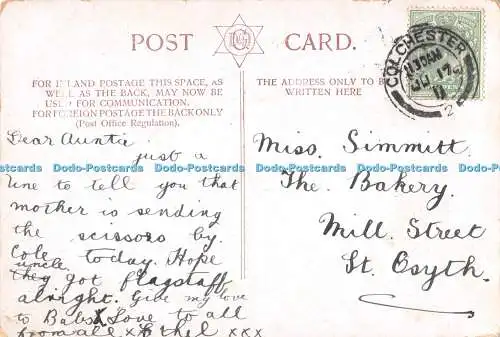 POST CARD.
FOR INLAND POSTAGE THIS SPACE, AS
WELL AS THE BACK, MAY NOW BE
USED FOR COMMUNICATION.
FOR FOREIGN POSTAGE THE BACK ONLY
(Post Office Regulation).
THE ADDRESS ONLY TO BE
WRITTEN HERE
COLCHESTER
1130AM
JU 17
11
2
Dear Auntie
just a
line to tell you that
mother is sending
the scissors by
Cole today. Hope
uncle
they got flagstaff
alright. Give my love
to Babs Love to all
from all x Ethel xxx
Miss. Simmitt
The Bakery.
Mill Street
St. Osyth.
Dodo-Postcards Dodo-Postcards Dodo-Postcards Dodo-Postcards Dodo-Postcards